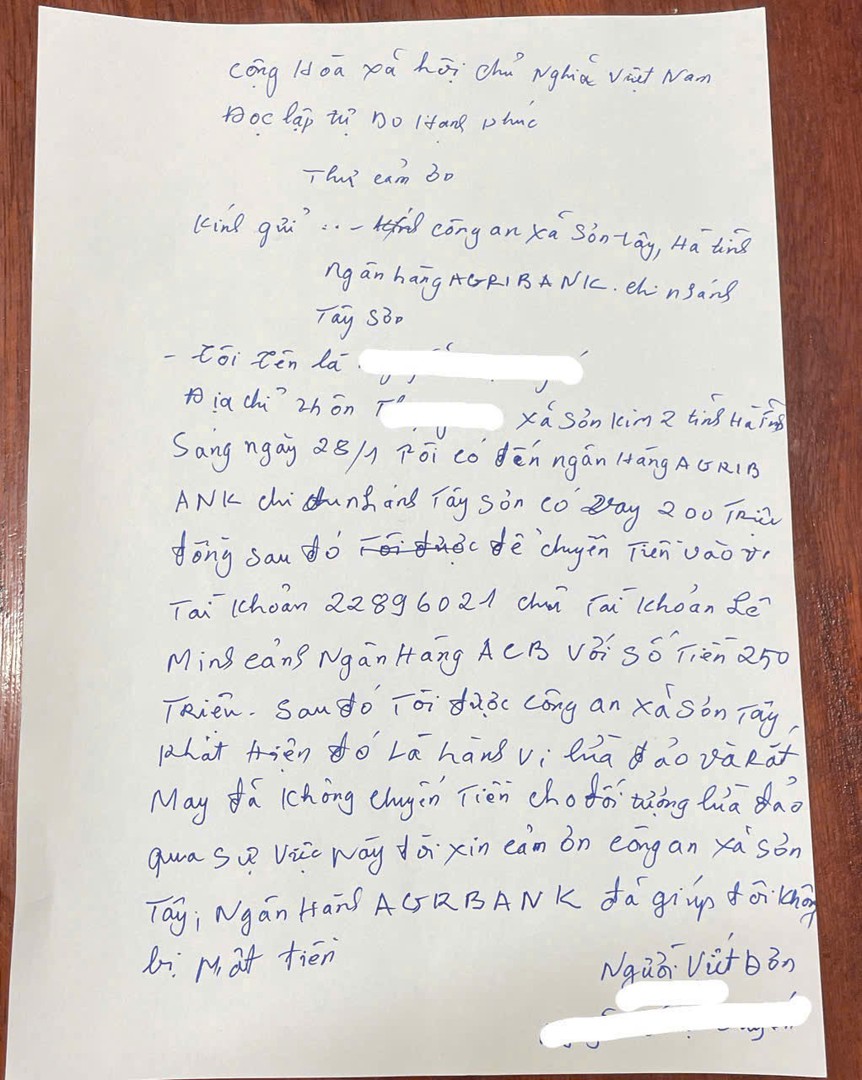 Cộng Hòa xã hội chủ Nghĩa Việt Nam
Độc lập tự Do Hanh phúc
Thư cảm ơn
Kính gửi : . - công an xã Sơn tây, Hà tĩnh
Ngân hàng AGRIBANK. chi nhánh
Tây Sơn
- Tôi tên là
Địa chỉ thôn T xã Sơn Kim 2 tỉnh Hà Tĩnh
Sáng ngày 28/1 Tôi có đến ngân Hàng AGRIB
ANK chi nhánh Tây Sơn có vay 200 Triệu
đồng sau đó Tôi được để chuyển Tiền vào
Tài Khoản 22896021 chủ Tài Khoản Lê
Minh cảnh Ngân Hàng ACB Với Số Tiền 250
TRiệu. Sau đó Tôi được công an xã Sơn Tây,
phát Hiện đó Là hành vi lừa đảo và Rất
May đã Không chuyển Tiền cho đối tượng lừa đảo
qua Sự Việc Này tôi xin cảm ơn công an xã Sơn
Tây, Ngân Hàng AGRBANK đã giúp tôi không
bị Mất tiền
Người Viết Đơn